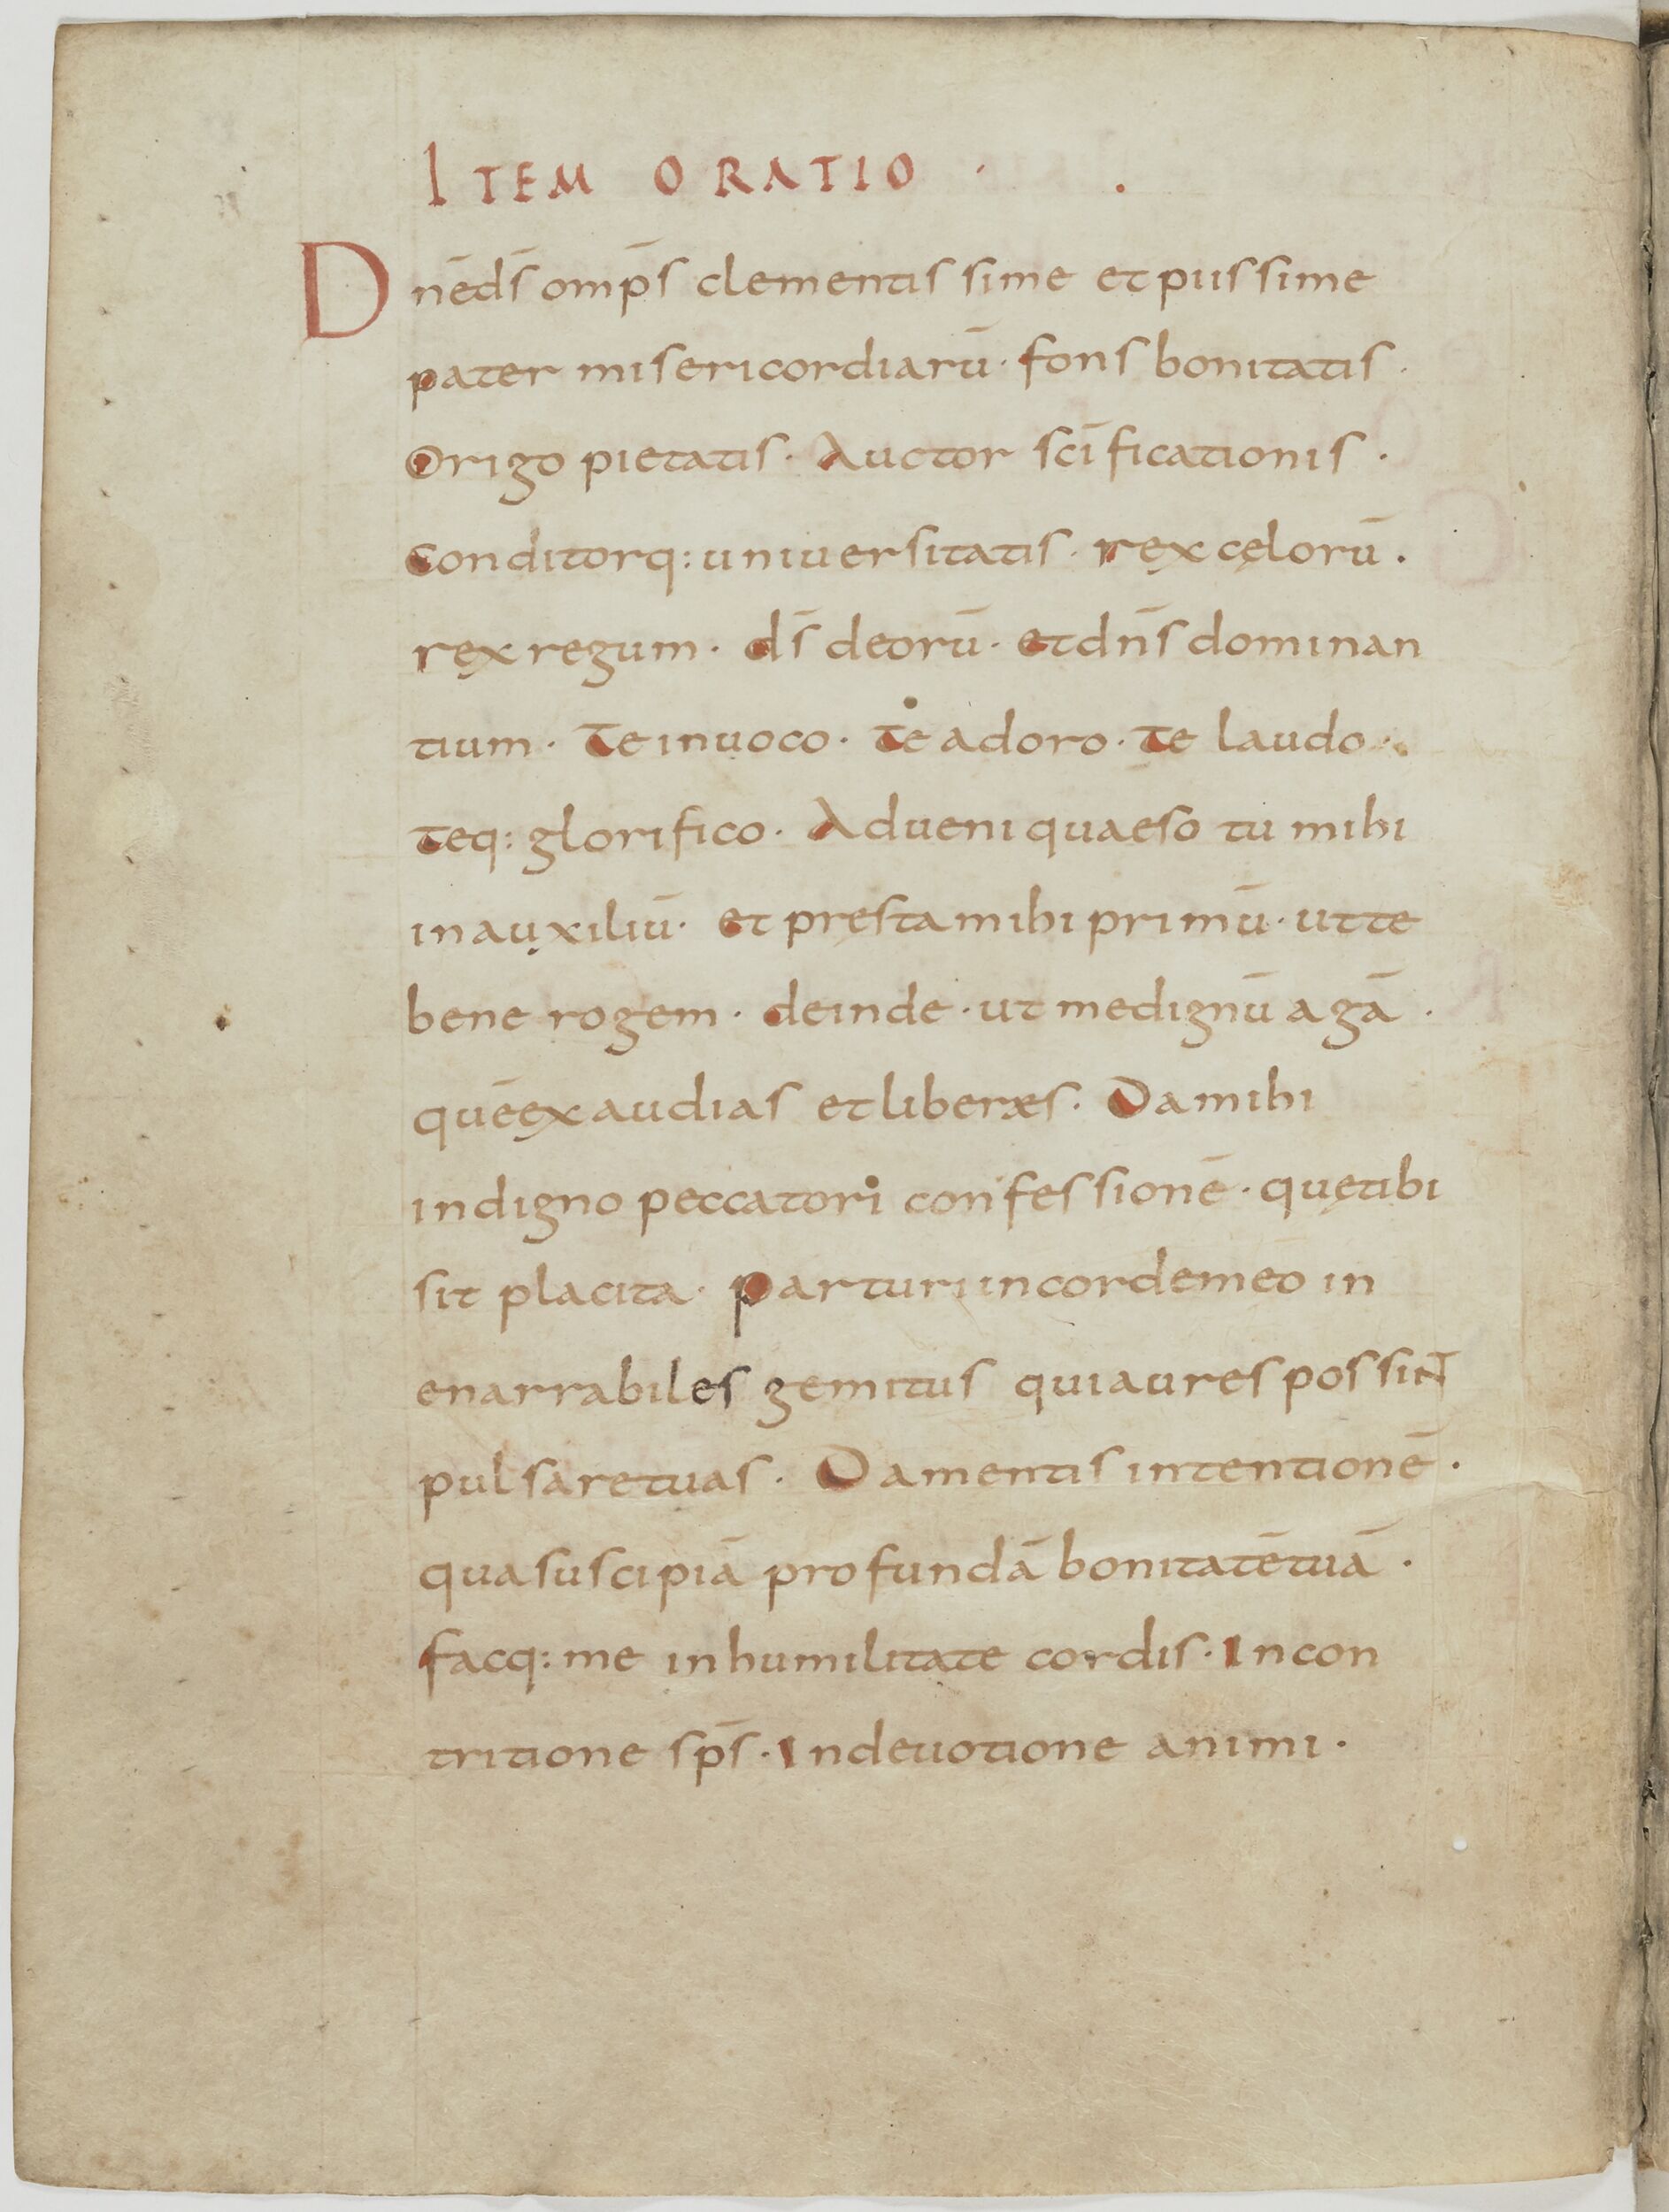 ITEM ORATIO ·
Dn̄e ds̄ omp̄s clementissime et piissime
pater misericordiarū · fons bonitatis ·
Origo pietatis · Auctor sc̄ificationis ·
Conditorq: universitatis · rex cęlorū ·
rex regum · ds̄ deorū · et dn̄s dominan
tium · Te invoco · Te adoro · Te laudo ·
Teq: glorifico · Adveni quaeso tu mihi
in auxiliū · et pręsta mihi primū · ut te
bene rogem · deinde · ut me dignū agā ·
quē exaudias et liberes · Da mihi
indigno peccatori confessionē · quę tibi
sit placita · Parturi in corde meo in
enarrabiles gemitus qui aures possint
pulsare tuas · Da mentis intentionē ·
qua suscipiā profundā bonitatē tuā ·
facq: me in humilitate cordis · In con
tritione sp̄s · In deuotione animi ·